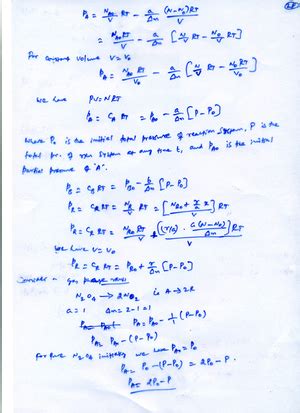 P_A = N_A0 RT / V - a/Δn (N-N0)RT / V
= N_A0 RT / V - a/Δn [N/V RT - N0/V RT]
For constant volume V=V0
P_A = N_A0 RT / V0 - a/Δn [N/V RT - N0 RT / V0]
We have PV=NRT
P_A = C_A RT = P_A0 - a/Δn [P-P0]
Where P0 is the initial total pressure of reaction system, P is the
total pr. of rxn system at any time t, and P_A0 is the initial
partial pressure of "A".
P_B = C_B RT = P_B0 - b/Δn [P-P0]
P_R = C_R RT = N_R/V RT = [N_R0 + r/a x] RT / V
P_R = C_R RT = N_R0 RT / V + [(r/a) · a(N-N0)/Δn] RT / V
We have V=V0
P_R = C_R RT = P_R0 + r/Δn [P-P0]
Consider a gas phase rxn
N2O4 → 2NO2 is A→2R
a=1 Δn=2-1=1
P_A = P_A0 - 1/1 (P-P0)
P_A = P_A0 - (P-P0)
For pure N2O4 initially we have P_A0 = P0
P_A = P0 - (P-P0) = 2P0 - P.
P_A = 2P0 - P